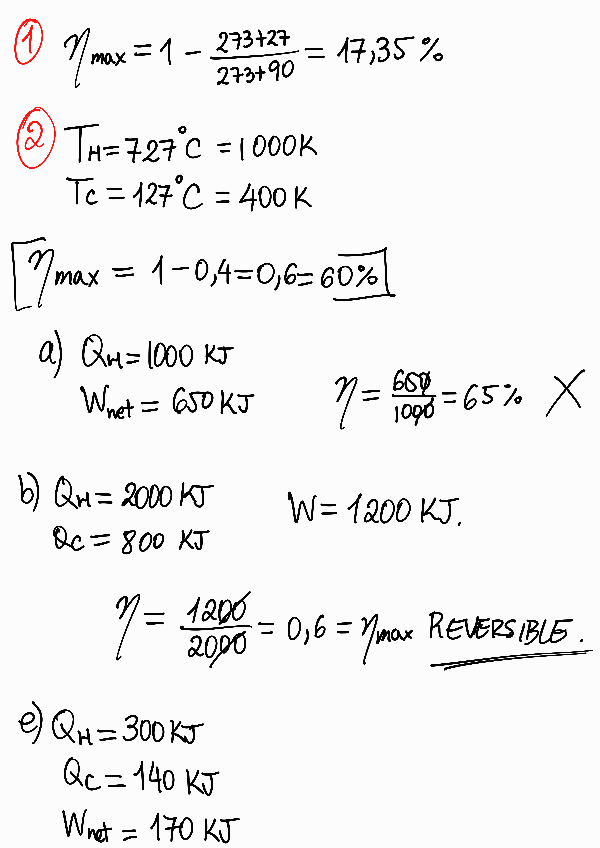 ① η max = 1 - 273+27 / 273+90 = 17,35 %
② TH = 727°C = 1000K
Tc = 127°C = 400 K
η max = 1 - 0,4 = 0,6 = 60%
a) QH = 1000 KJ
Wnet = 650 KJ
η = 650 / 1000 = 65% X
b) QH = 2000 KJ
Qc = 800 KJ
W = 1200 KJ.
η = 1200 / 2000 = 0,6 = ηmax REVERSIBLE.
e) QH = 300 KJ
Qc = 140 KJ
Wnet = 170 KJ